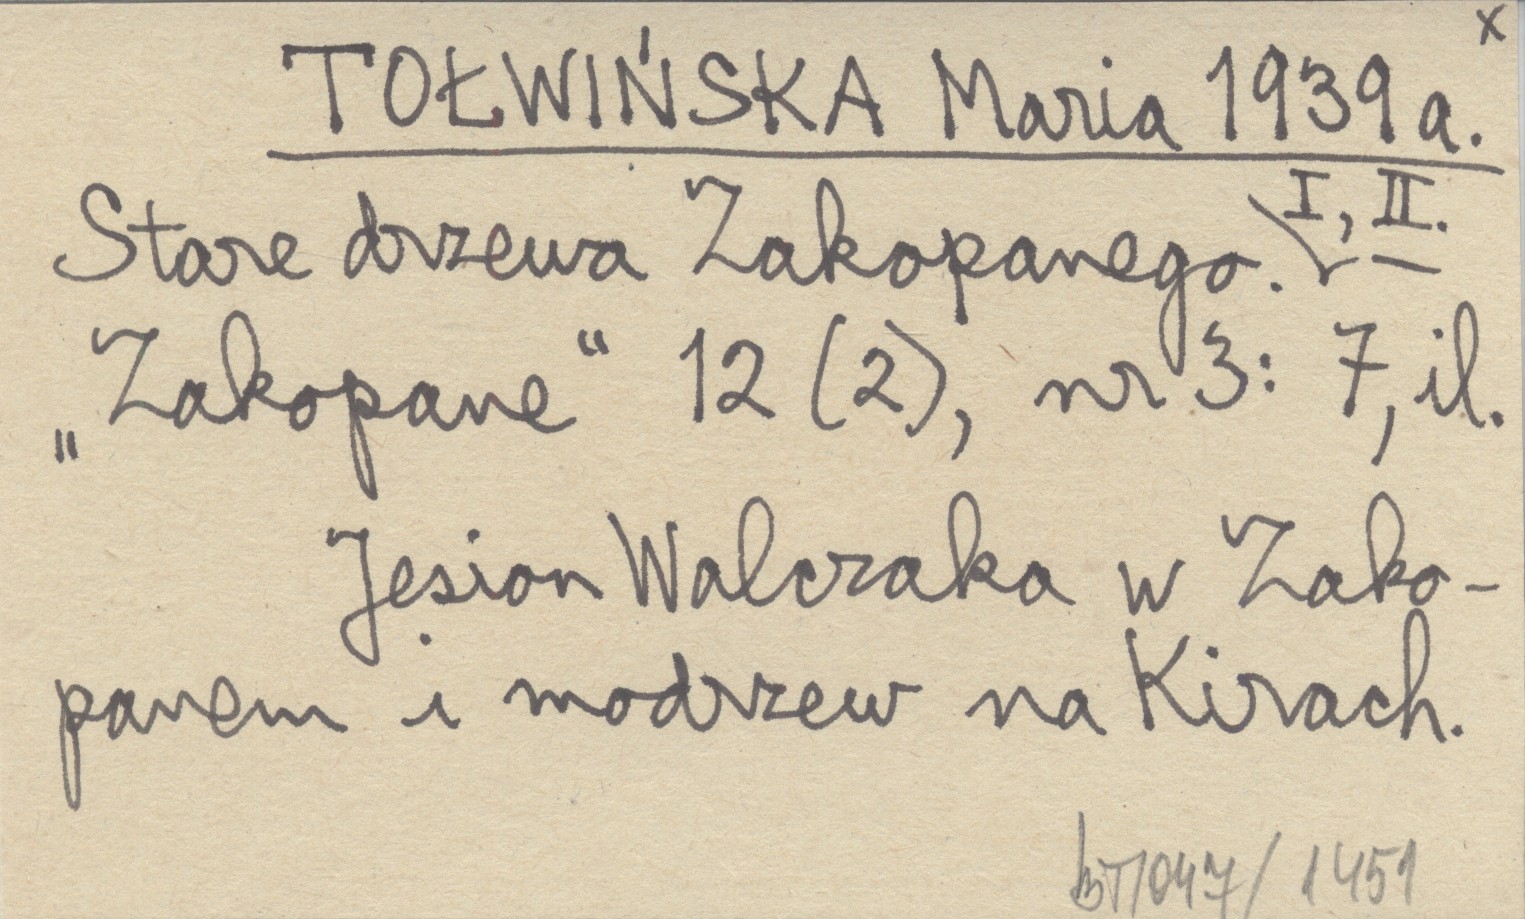 x
TOŁWIŃSKA Maria 1939a.
Stare drzewa Zakopanego. I, II.
„Zakopane“ 12 (2), nr 3: 7, il.
Jesion Walczaka w Zako-
panem i modrzew na Kirach.
/ 1451